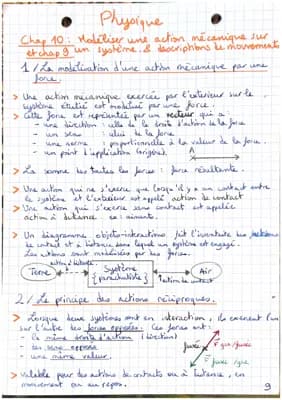 Physique
Chap 10 : Modéliser une action mécanique sur
et chap 9 un système. & descriptions de mouvements
1 / La modélisation d'une action mécanique par une
force.
> Une action mécanique exercée par l'extérieur sur le
système étudié est modélisé par une force.
> Cette force est représentée par un vecteur qui a
- une direction : celle de la droite d'action de la force
- un sens : celui de la force
- une norme : proportionnelle à la valeur de la force.
- un point d'application (origine).
> La somme de toutes les forces : force résultante.
> Une action qui ne s'exerce que lorsqu'il y a un contact entre
le système et l'extérieur est appelé action de contact
> Une action qui s'exerce sans contact est appelée
action à distance. ex : aimants.
> Un diagramme objets-interactions fait l'inventaire des actions
de contact et à distance dans lequel un système est engagé.
Les actions sont modélisées par des forces.
action à distance
Terre
Système
{parachutiste}
Air
action de contact
2 / Le principe des actions réciproques.
> Lorsque deux systèmes sont en interaction, ils exercent l'un
sur l'autre des forces opposées. Ces forces ont :
- la même droite d'action (direction)
- des sens opposés
- une même valeur.
fusée
F gaz/fusée
F fusée/gaz
> Valable pour des actions de contacts ou à distance, en
mouvement ou au repos.
9